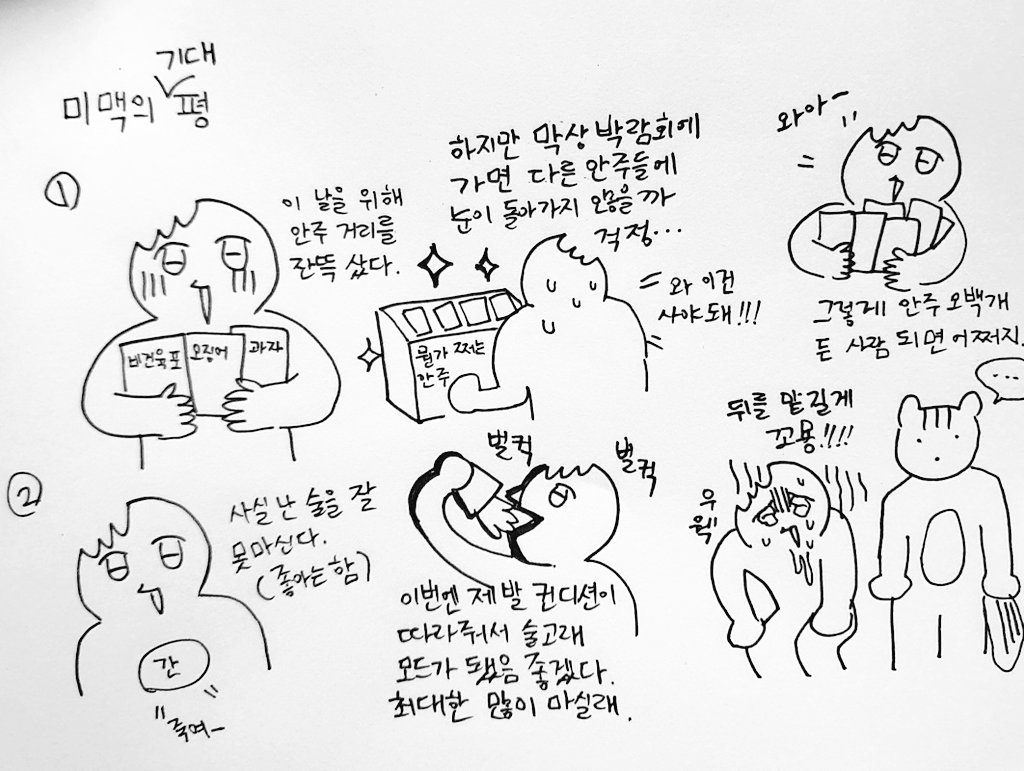 기대
미맥의 평
①
이 날을 위해
안주 거리를
잔뜩 샀다.
비건육포
오징어
과자
하지만 막상 박람회에
가면 다른 안주들에
눈이 돌아가지 않을까
걱정...
뭔가 쩌는
안주
와 이건
사야돼!!!
와아~
그렇게 안주 오백개
든 사람 되면 어쩌지.
②
사실 난 술을 잘
못마신다.
(좋아는 함)
간
"죽여~
벌컥
벌컥
이번엔 제발 컨디션이
따라줘서 술고래
모드가 됐음 좋겠다.
최대한 많이 마실래.
뒤를 맡길게
꼬용!!!!
우
웩"
...